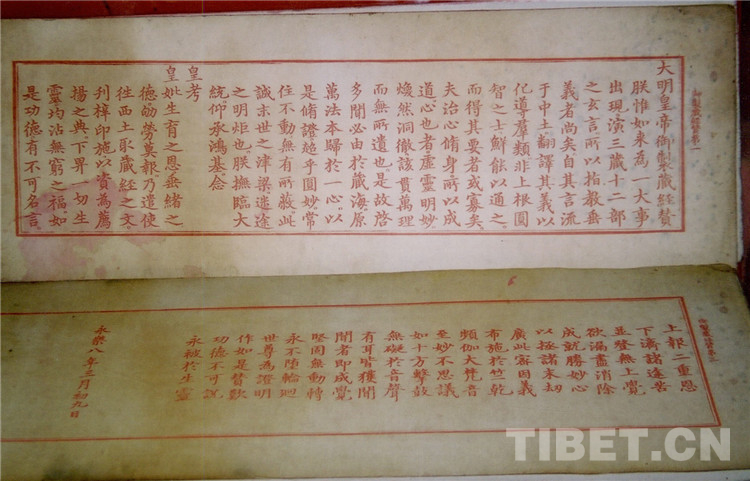 大明皇帝御製藏經賛
朕惟如来為一大事
出現演三藏十二部
之玄言所以指教垂
義者尚矣自其言流
于中土翻譯其義以
化導羣類非上根圓
智之士鮮能以通之
而得其要者或寡矣
夫治心脩身所以成
道心也者虛靈明妙
煥然洞徹該貫萬理
而無所遺也是故啓
多聞必由於藏海原
萬法本歸於一心以
是脩證超乎圓妙常
住不動無有所蔽此
誠末世之津梁迷途
之明炬也朕撫臨大
統仰承鴻基念
皇考
皇妣生育之恩垂緒之
德劬勞莫報乃遣使
往西土取藏經之文
刊梓印施以資為薦
揚之典下畀一切生
靈均沾無窮之福如
是功德有不可名言
上報二重恩
下濟諸途苦
並登無上覺
欲漏盡消除
成就勝妙心
以極諸末劫
廣此宿因義
布施於竺乾
頻伽大梵音
至妙不思議
如十方擊鼓
無礙於音聲
有耳皆獲聞
聞者即成覺
堅固無動轉
永不墮輪廻
世尊為證明
作如是賛歎
功德不可說
永被於生靈
永樂八年三月初九日
TIBET.CN